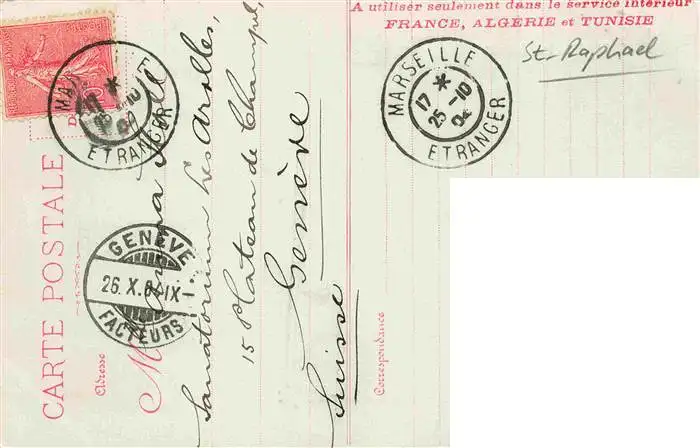 A utiliser seulement dans le service intérieur
FRANCE, ALGÉRIE et TUNISIE
St-Raphael
MARSEILLE
17
25 -10
ETRANGER
MARSEILLE
17
ETRANGER
CARTE POSTALE
Adresse
GENÈVE
26.X.04.IX-
FACTEURS
Sanatorium Les Arolles,
15 Plateau de Champel,
Genève
Suisse
Correspondance